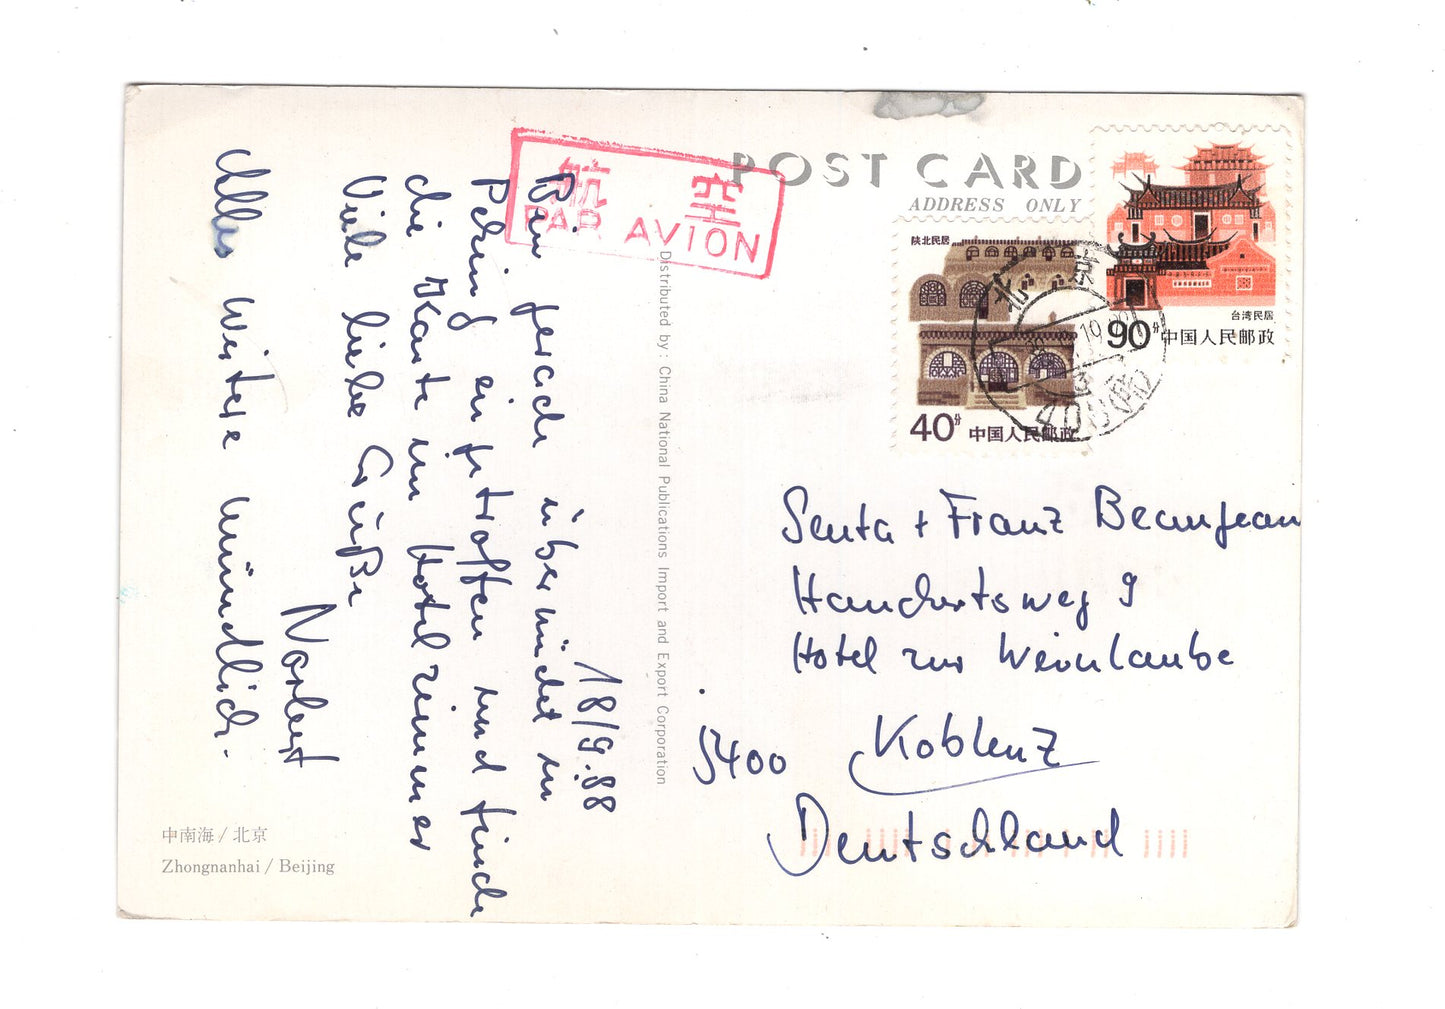 POST CARD
ADDRESS ONLY
航空
PAR AVION
陕北民居
40分 中国人民邮政
台湾民居
90分 中国人民邮政
北京
18/9.88
Bin gerade übermüdet in
Peking eingetroffen und finde
die Karte im Hotelzimmer
Viele liebe Grüße
Norbert
Alles weitere mündlich.
Distributed by: China National Publications Import and Export Corporation
Senta + Franz Beaujean
Hotel zur Weinlaube
5400 Koblenz
Deutschland
中南海/北京
Zhongnanhai / Beijing